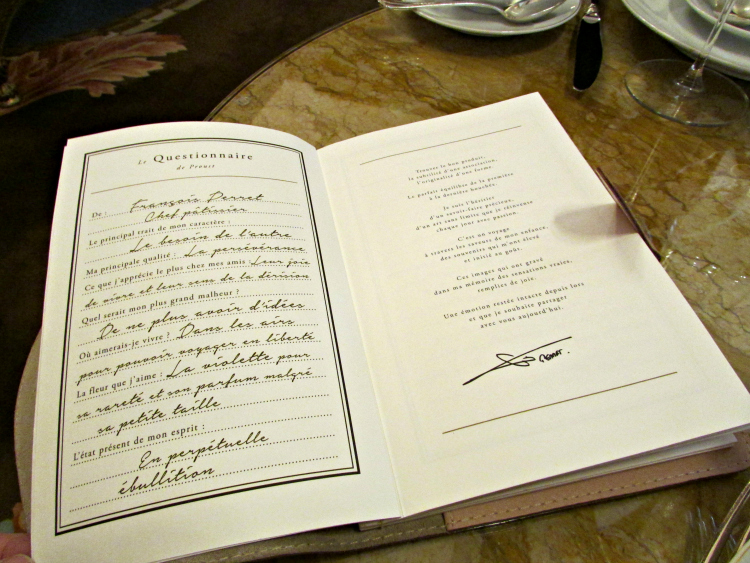 Le Questionnaire
de Proust
De : François Perret
Chef pâtissier
Le principal trait de mon caractère :
Le besoin de l'autre
Ma principale qualité : La persévérance
Ce que j'apprécie le plus chez mes amis : Leur joie
de vivre et leur sens de la dérision
Quel serait mon plus grand malheur ?
De ne plus avoir d'idées
Où aimerais-je vivre ? Dans les airs
pour pouvoir voyager en liberté
La fleur que j'aime : La violette pour
sa rareté et son parfum malgré
sa petite taille
L'état présent de mon esprit :
En perpétuelle
ébullition
Trouver le bon produit,
la subtilité d'une association,
l'originalité d'une forme.
Le parfait équilibre de la première
à la dernière bouchée.
Je suis l'héritier
d'un savoir-faire précieux,
d'un art sans limite que je réinvente
chaque jour avec passion.
C'est un voyage
à travers les saveurs de mon enfance,
des souvenirs qui m'ont élevé
et initié au goût.
Ces images qui ont gravé
dans ma mémoire des sensations vraies,
remplies de joie.
Une émotion restée intacte depuis lors
et que je souhaite partager
avec vous aujourd'hui.